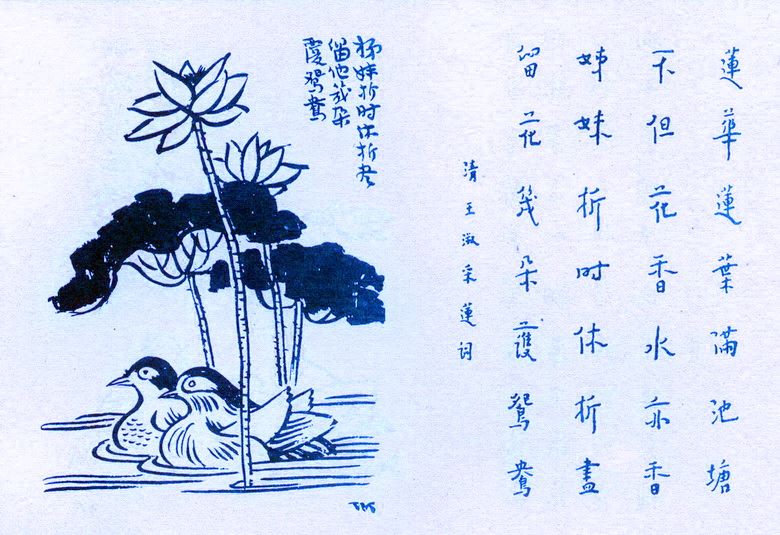 蓮華蓮葉滿池塘
不但花香水亦香
姊妹折时休折盡
留花幾朵護鴛鴦
清 王淑 采蓮词
姊妹折时休折尽
留他幾朵
覆鴛鴦
TK